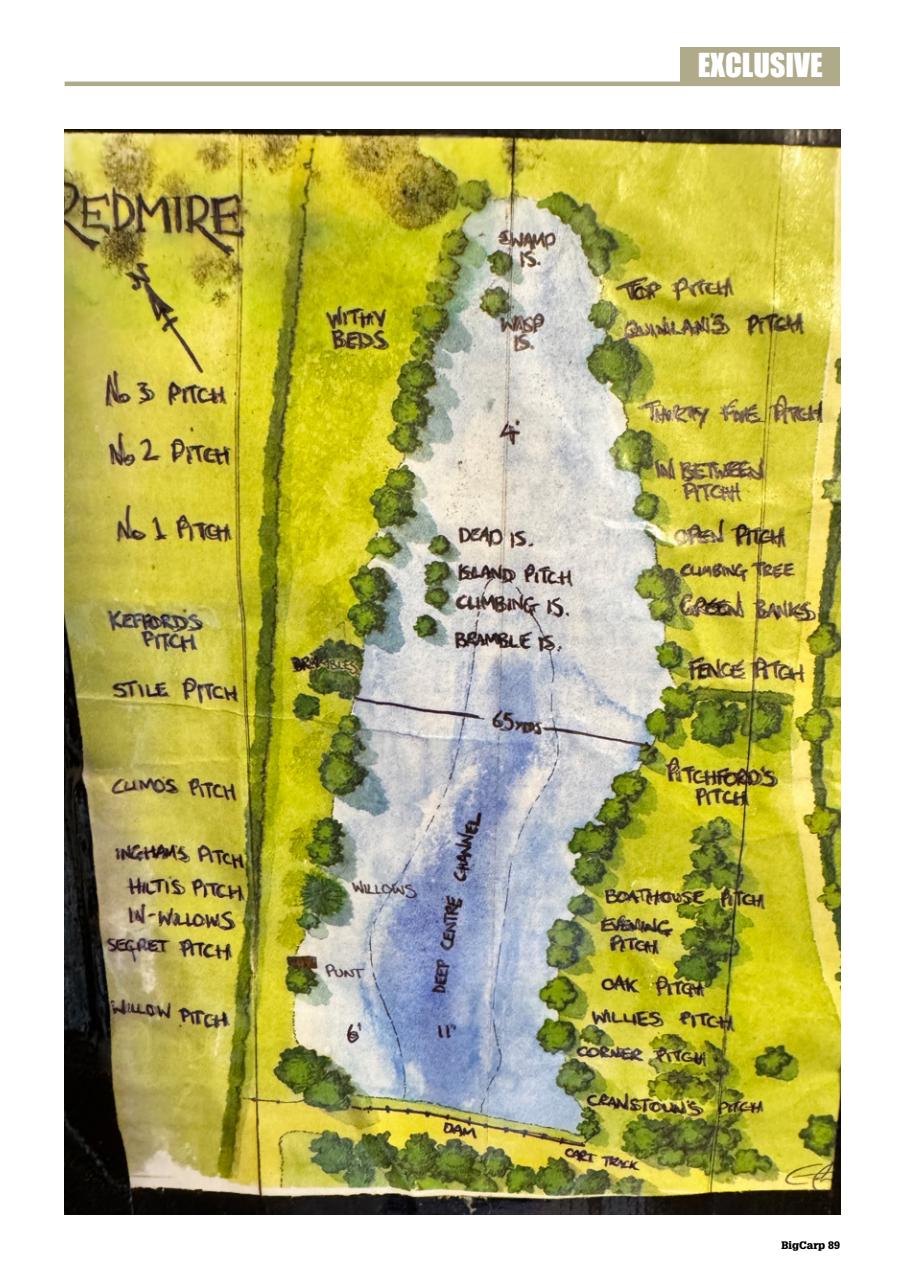 EXCLUSIVE
REDMIRE
N
SWAMP
IS.
WASP
IS.
WITHY
BEDS
4'
No 3 PITCH
No 2 PITCH
No 1 PITCH
KEFFORD'S
PITCH
STILE PITCH
CLIMO'S PITCH
INGHAM'S PITCH
HILTI'S PITCH
IN-WILLOWS
SECRET PITCH
WILLOW PITCH
DEAD IS.
ISLAND PITCH
CLIMBING IS.
BRAMBLE IS.
BRAMBLES
65 YDS
DEEP CENTRE CHANNEL
WILLOWS
PUNT
6'
11'
TOP PITCH
QUINLAN'S PITCH
THIRTY FIVE PITCH
IN BETWEEN
PITCH
OPEN PITCH
CLIMBING TREE
GREEN BANKS
FENCE PITCH
PITCHFORD'S
PITCH
BOATHOUSE PITCH
EVENING
PITCH
OAK PITCH
WILLIES PITCH
CORNER PITCH
CRANSTOUN'S PITCH
DAM
CART TRACK
BigCarp 89